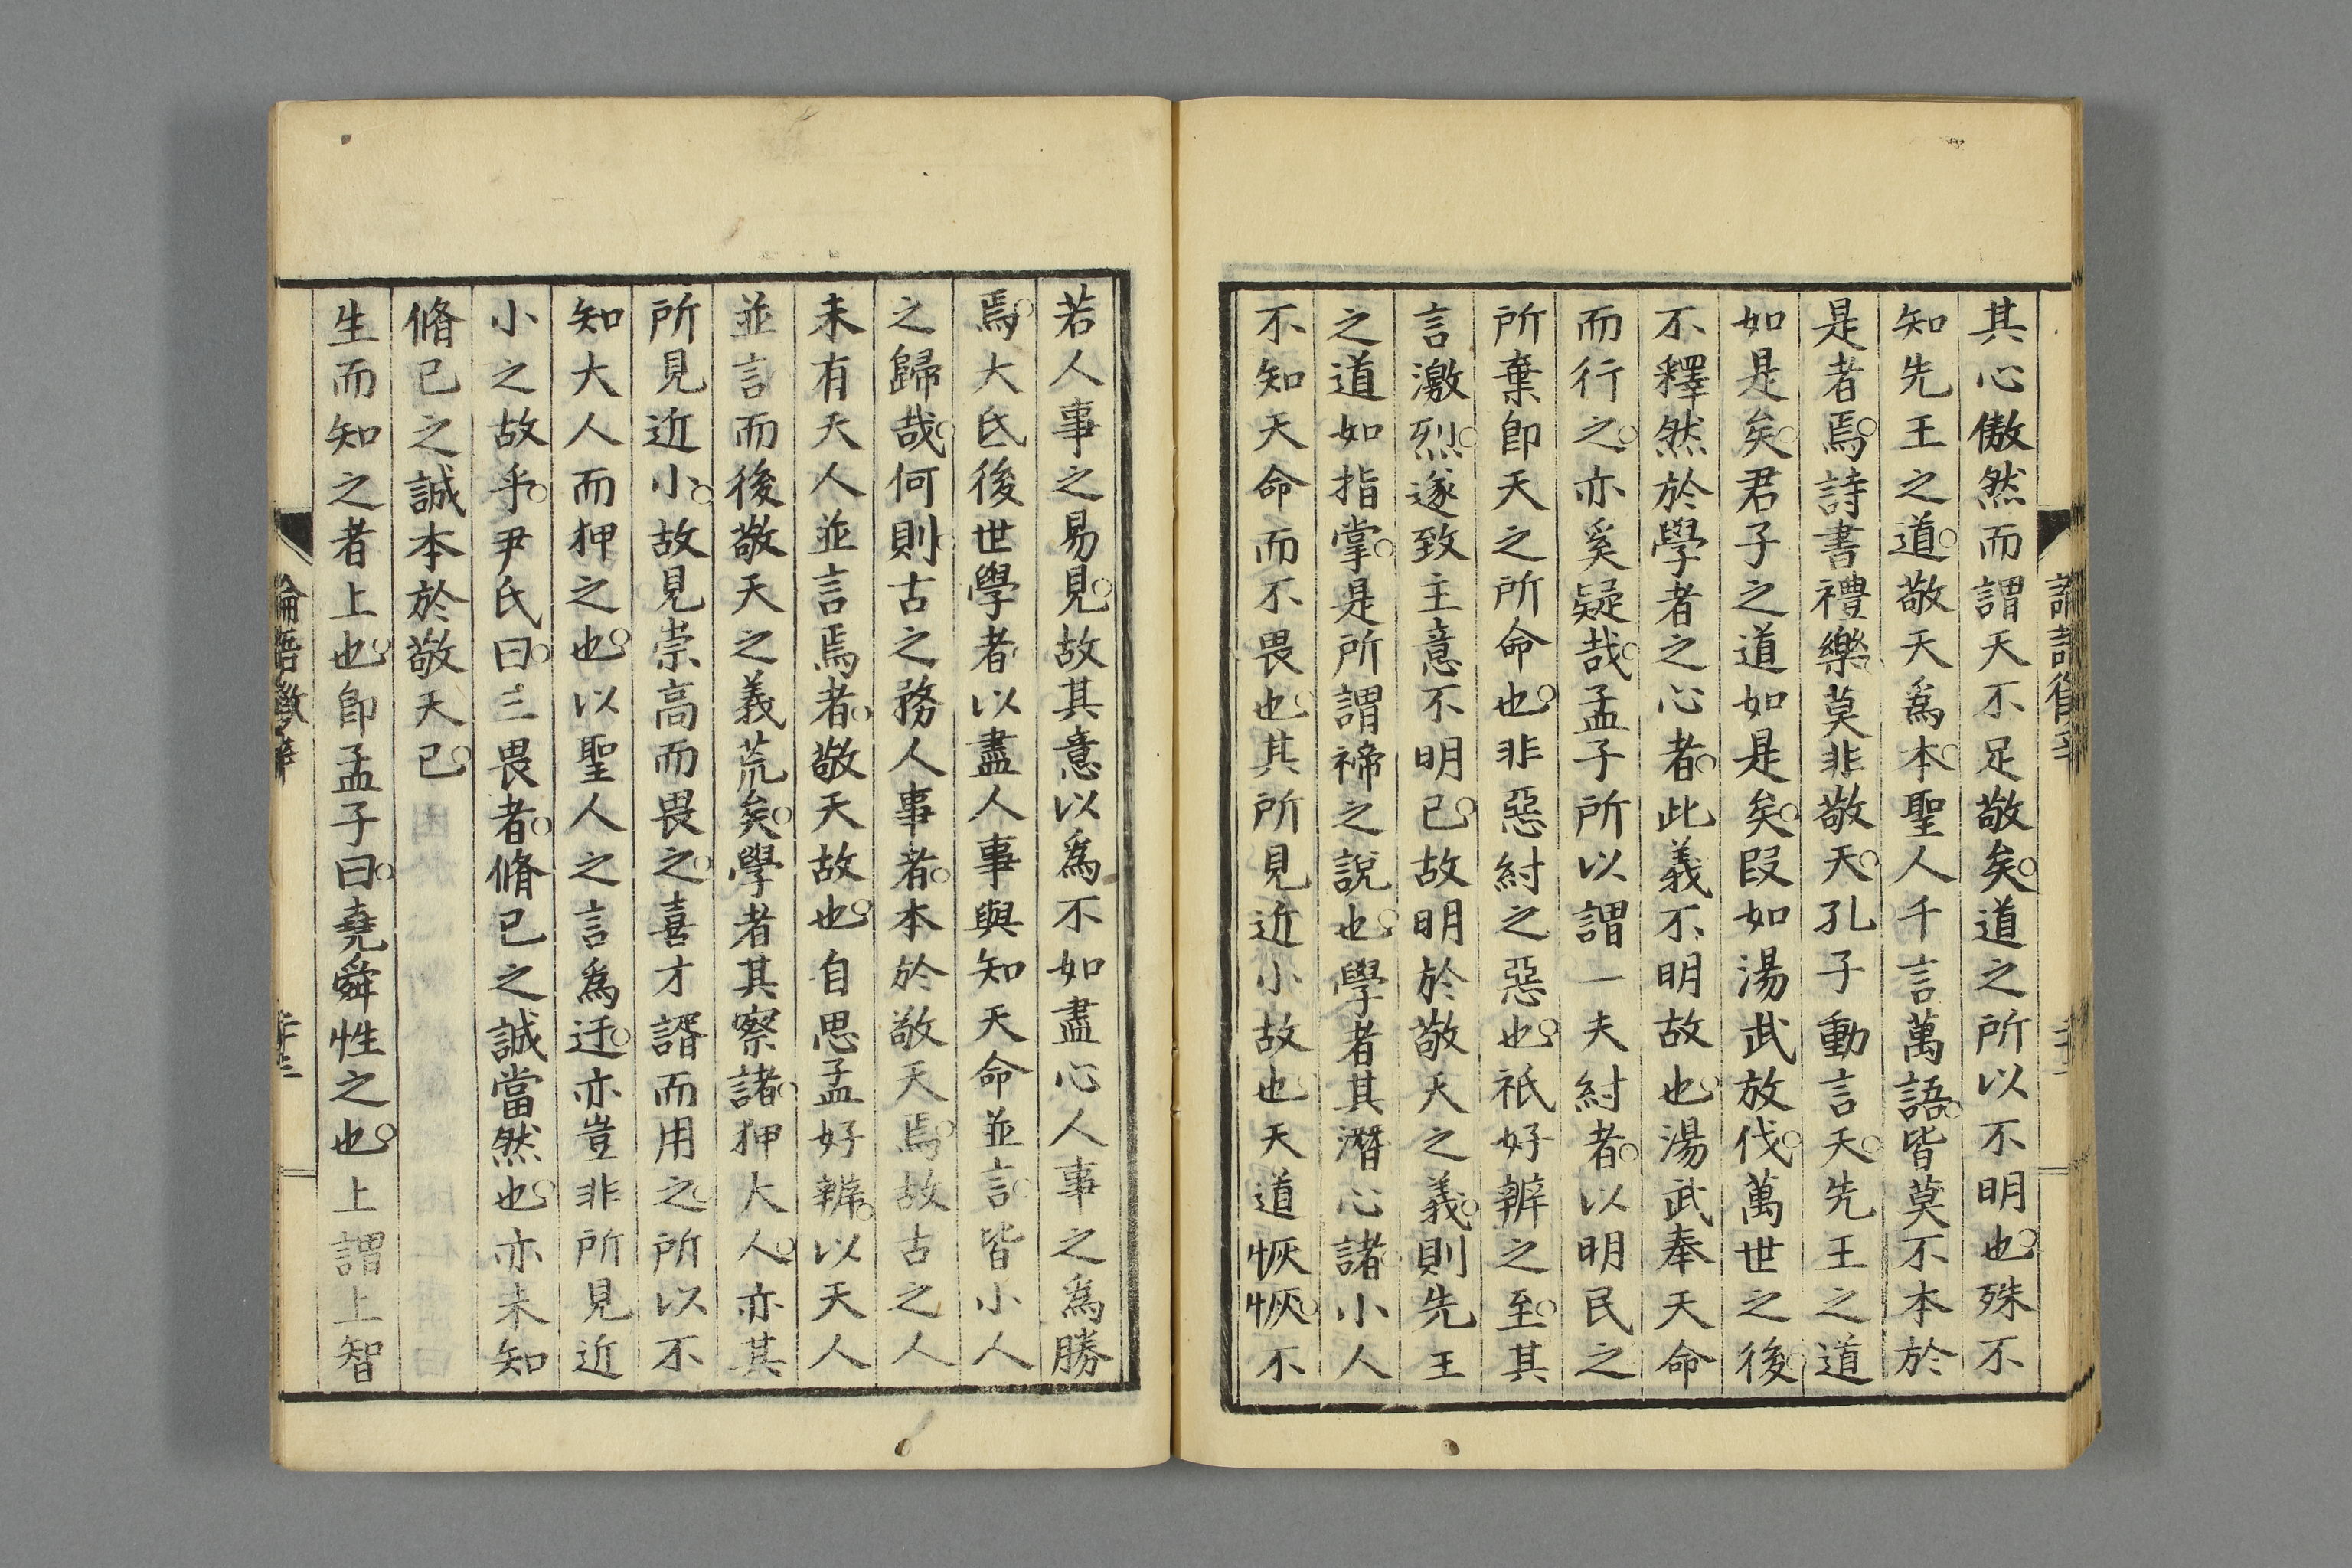 其心傲然而謂天不足敬矣。道之所以不明也。殊不
知先王之道。敬天爲本。聖人千言萬語。皆莫不本於
是者焉。詩書禮樂莫非敬天。孔子動言天。先王之道
如是矣。君子之道如是矣。叚如湯武放伐。萬世之後。
不釋然於學者之心者。此義不明故也。湯武奉天命
而行之。亦奚疑哉。孟子所以謂一夫紂者。以明民之
所棄卽天之所命也。非惡紂之惡也。祇好辨之至。其
言激烈。遂致主意不明已。故明於敬天之義。則先王
之道如指掌。是所謂禘之說也。學者其潛心諸。小人
不知天命而不畏也。其所見近小故也。天道恢恢。不
若人事之易見。故其意以爲不如盡心人事之爲勝
焉。大氐後世學者以盡人事與知天命並言。皆小人
之歸哉。何則。古之務人事者。本於敬天焉。故古之人
未有天人並言焉者。敬天故也。自思孟好辨。以天人
並言而後敬天之義荒矣。學者其察諸。狎大人。亦其
所見近小。故見崇高而畏之。喜才諝而用之。所以不
知大人而狎之也。以聖人之言爲迂。亦豈非所見近
小之故乎。尹氏曰。三畏者。脩己之誠當然也。亦未知
脩己之誠本於敬天已。
生而知之者上也。卽孟子曰。堯舜性之也。上謂上智
論語徵辛
論語徵辛
二十三